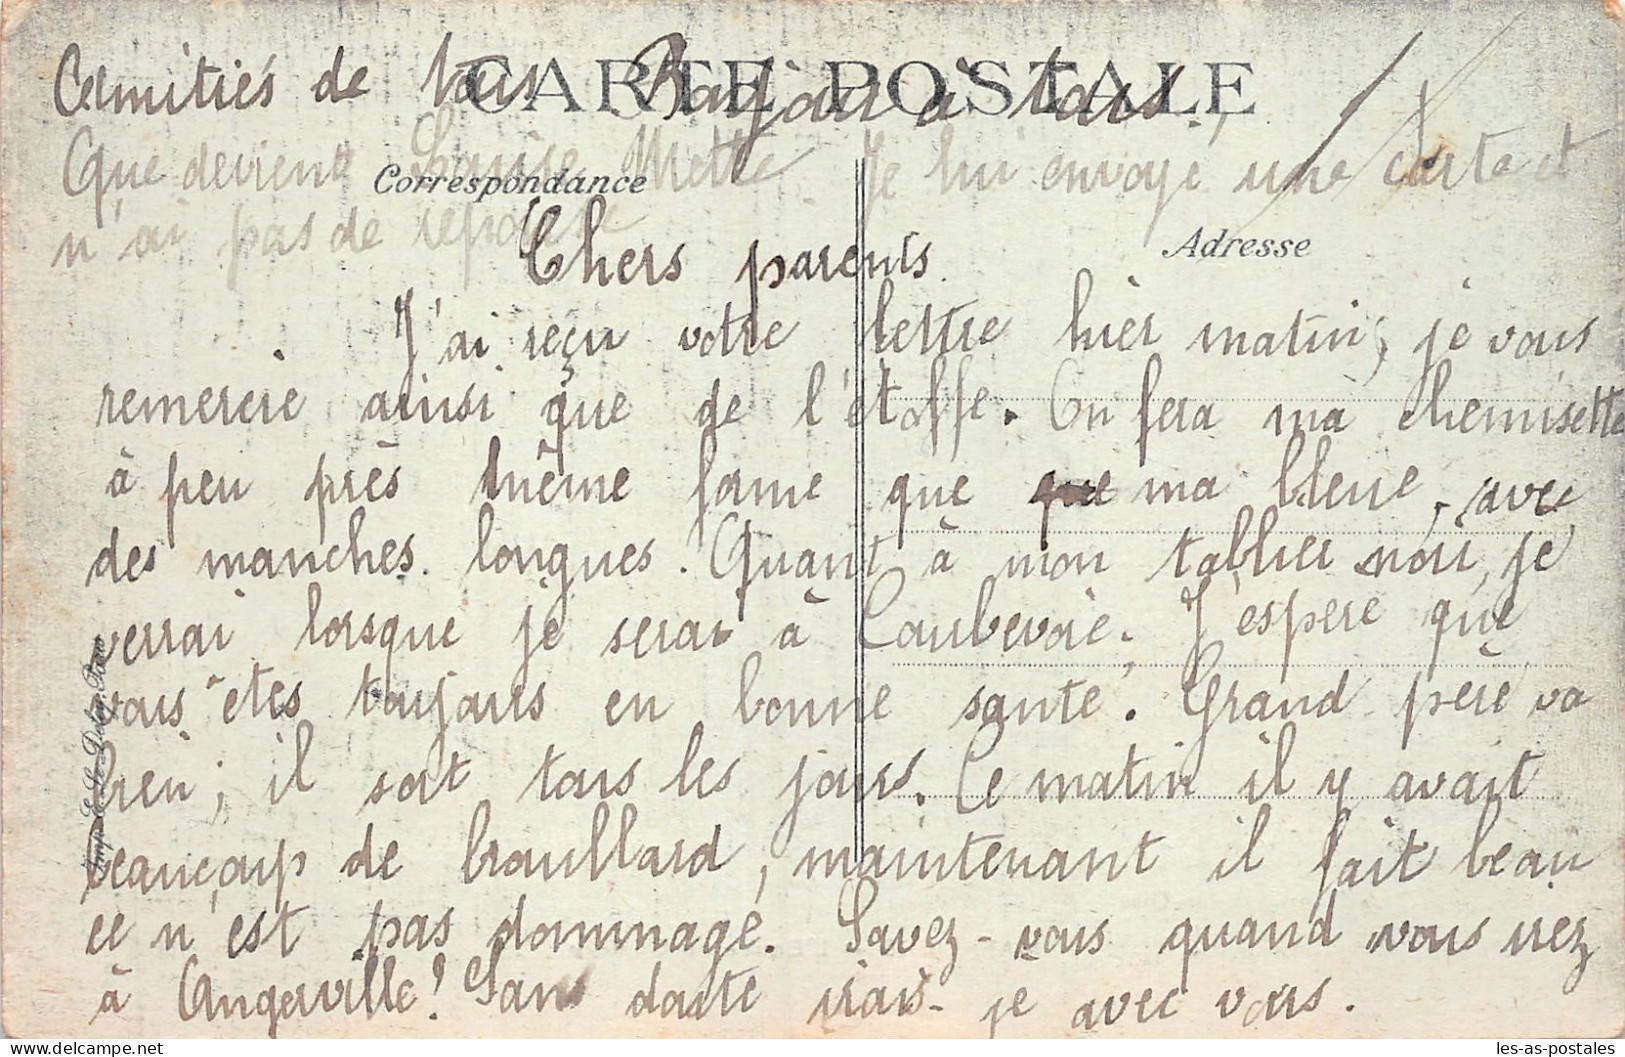 Amitiés de tous Bonjour à tous.
CARTE POSTALE
Que devient Louise Mette Je lui envoyé une carte et
Correspondance
n'ai pas de réponse
Adresse
Chers parents
J'ai reçu votre lettre hier matin, je vous
remercie ainsi que de l'étoffe. On fera ma chemisette
à peu près même forme que ma bleue, avec
des manches longues. Quant à mon tablier noir, je
verrai lorsque je serai à Courbevoie. J'espère que
vous êtes toujours en bonne santé. Grand père va
bien; il sort tous les jours. Ce matin il y avait
beaucoup de brouillard, maintenant il fait beau
ce n'est pas dommage. Savez-vous quand vous irez
à Angerville? Sans doute irais-je avec vous.
Imp. E. Le Deley, Paris
les-as-postales.com